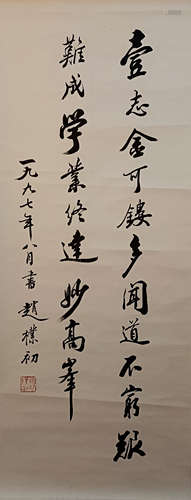 壹志金可鏤多聞道不窮艱
難成學業終達妙高峯
一九九七年八月書趙樸初